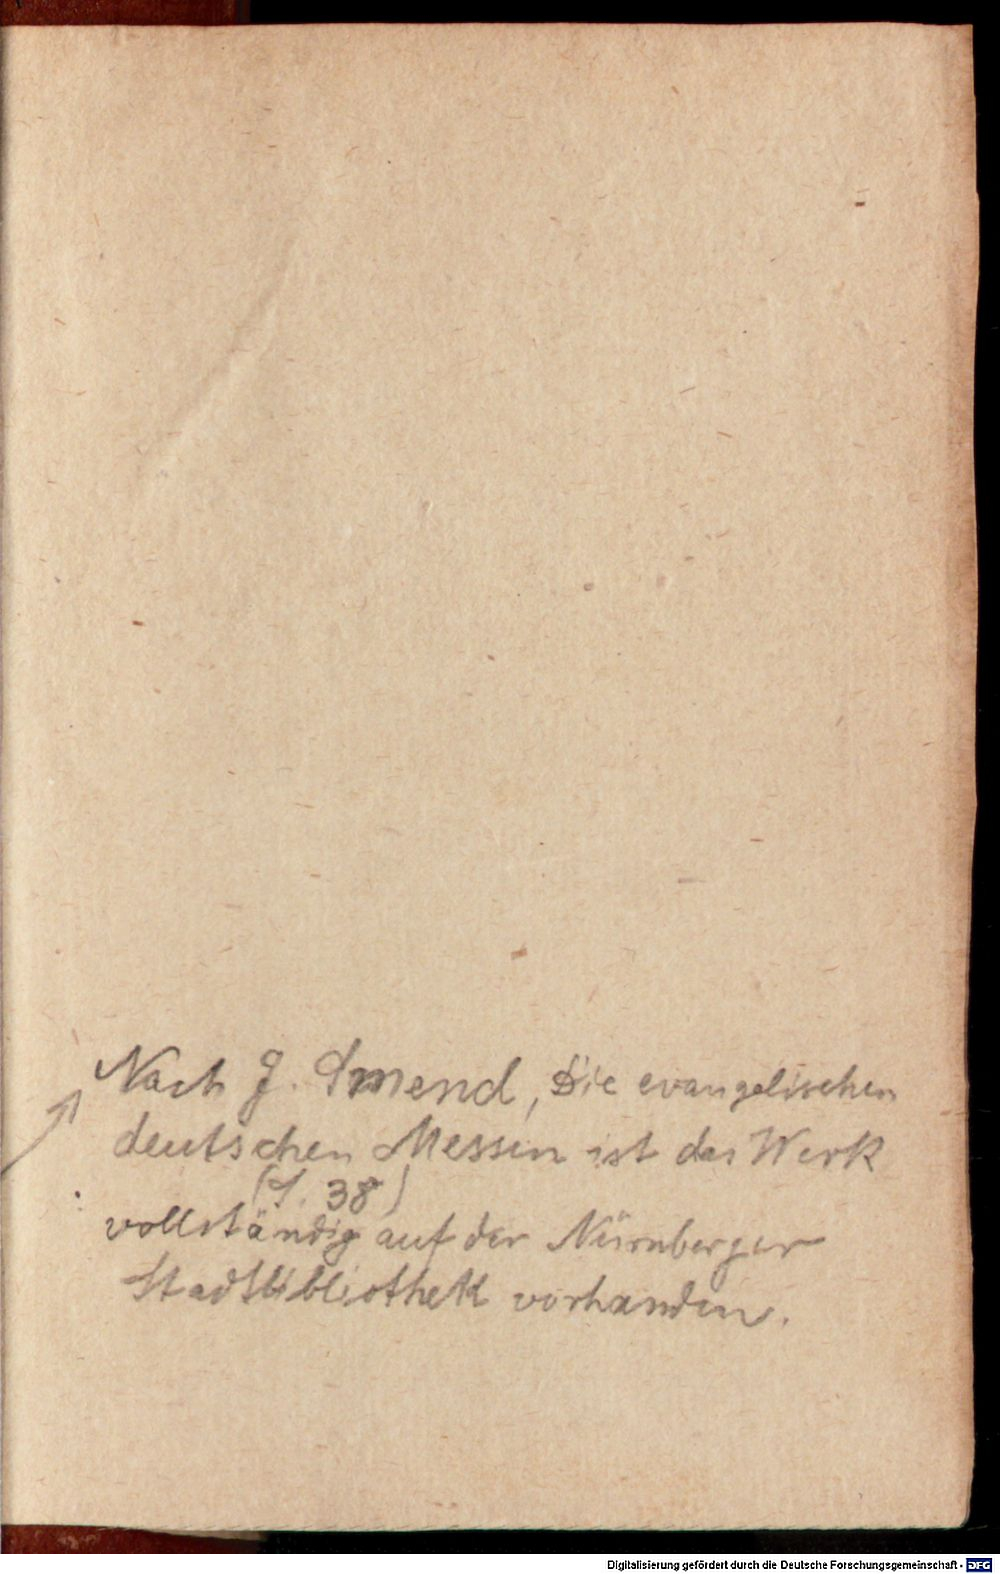 Nach J. Smend, Die evangelischen
deutschen Messen ist das Werk
(S. 38)
vollständig auf der Nürnberger
Stadtbibliothek vorhanden.
Digitalisierung gefördert durch die Deutsche Forschungsgemeinschaft - DFG